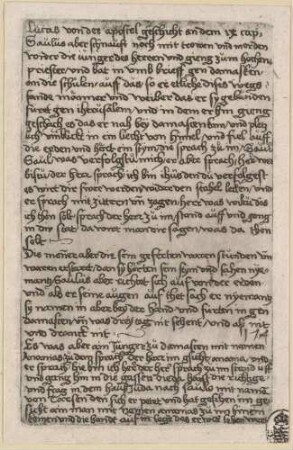 Lucas von des apostel geschicht an dem ix cap
Saulus aber schnauft noch mit trowen und morden
wider die iunger des herren und gieng zum hochen
priester und bat in umb brieff gen damasken
an die schulen auff das so er etliche dises wegs
fande männer und weiber das er sy gebunden
füret gen iherusalem und in dem er hin gieng
geschach es das er nach bey damascum und
umblickt in ein liecht von hymel und fiel auff
die erden und hört ein stym die sprach zu im Saul
Saul was verfolgstu mich er aber sprach her wer
bistu der herr sprach ich bin ihus den du verfolgest
es wirt dir swer werden wider den stahel und
er sprach mit zittern und zagen herr was wiltu das
ich thun sol sprach der herr zu im stand auff und gang
in die stat da wirt man dir sagen was du thun
solt
Die männer aber die sein geferten waren stunden und
waren erstarrt dan sy hörten sein stym und sahen nye
mantz Saulus aber richtet sich auf von der erden
und als er seine augen auf thet sach er nyemant
sy namen in aber bey der hand und fürten in gen
damasten und was drey tag mit sehent und aß nit
und dranck nit
Es was aber ein Junger zu damasten mit namen
Ananias zu dem sprach der herr im gsicht anania und
er sprach hie bin ich herr der her sprach zu im stend uff
und gang hin in die gassen die da haist die richtige
und frag in dem hauß Juda nach saulo mit namen
von Tarsen den sich er petet und hat gesehen im ge
sicht ain man mit namen ananias zu im hinein
komen und die hande auf in